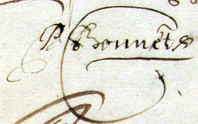 P Bonnets